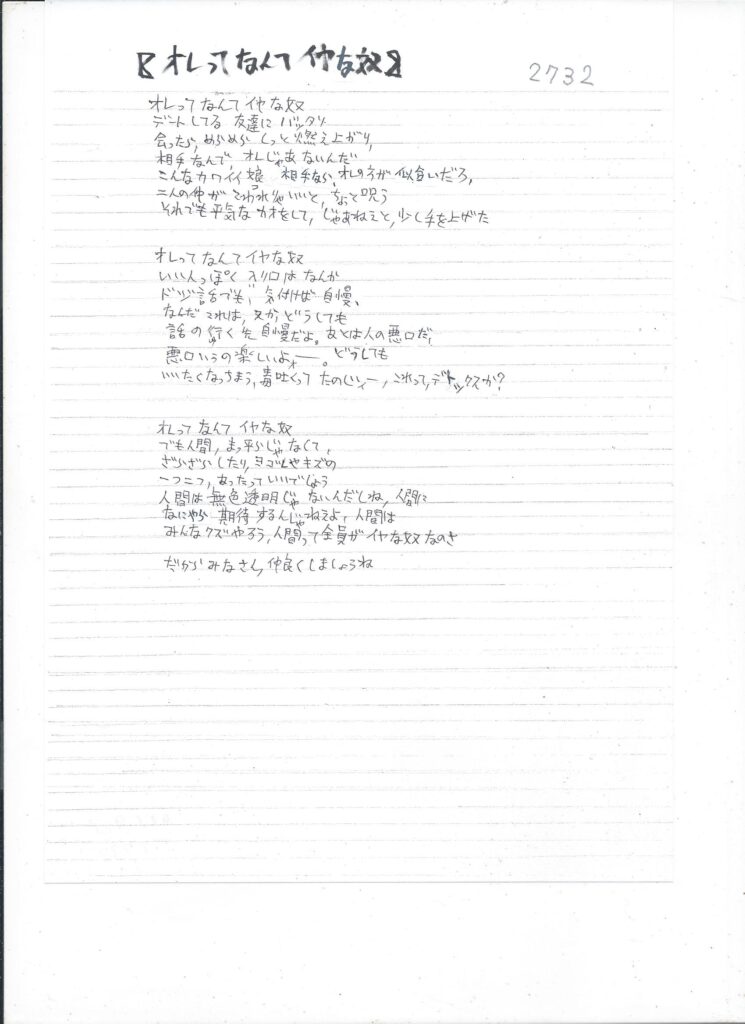 【オレってなんてイヤな奴】
2732
オレってなんてイヤな奴
デートしてる 友達に バッタリ
会ったら, めらめら しっと燃え上がり,
相手なんで, オレじゃあないんだ
こんなカワイイ娘 相手なら, オレの方が似合いだろ,
二人の仲が こわれりゃいいと, ちょっと呪う
それでも平気なカオをして, じゃあねえと, 少し手を上げた
オレってなんてイヤな奴
いい人っぽく 入り口はなんか
ドジ話でも, 気付けば 自慢,
なんだこれは, 又か, どうしても
話の行く先自慢だよ。あとは人の悪口だ,
悪口いうの楽しいよォー。どうしても
いいたくなっちまう, 毒吐くって たのしィー, これって, デトックスか?
オレってなんてイヤな奴
でも人間, まっ平らじゃなくて,
ざらざらしたり, ヨゴレやキズの
一つ二つ, あったっていいでしょう
人間は無色透明じゃないんだしね, 人間に
なにやら 期待するんじゃねえよ, 人間は
みんなクズやろう, 人間って全員がイヤな奴なのさ
だからみなさん, 仲良くしましょうね